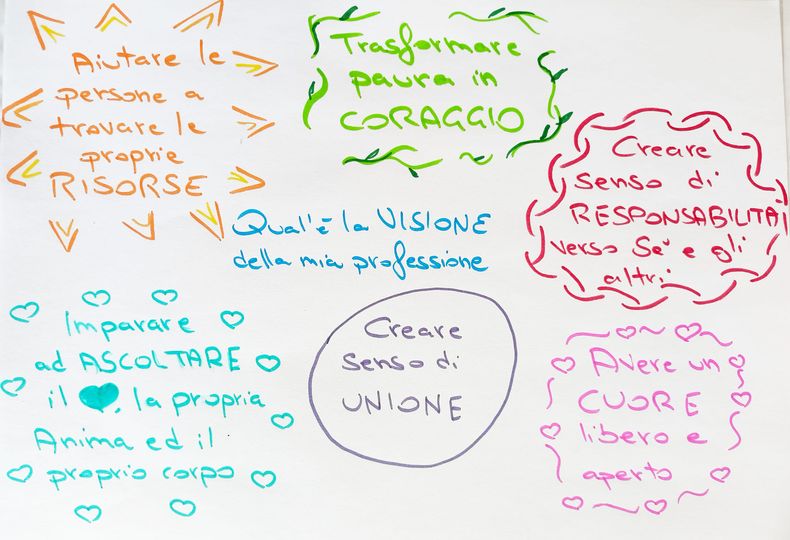 Aiutare le
persone a
trovare le
proprie
RISORSE
Trasformare
paura in
CORAGGIO
Creare
senso di
RESPONSABILITÀ
verso Sé e gli
altri
Qual'è la VISIONE
della mia professione
Imparare
ad ASCOLTARE
il ♥, la propria
Anima ed il
proprio corpo
Creare
senso di
UNIONE
Avere un
CUORE
libero e
aperto